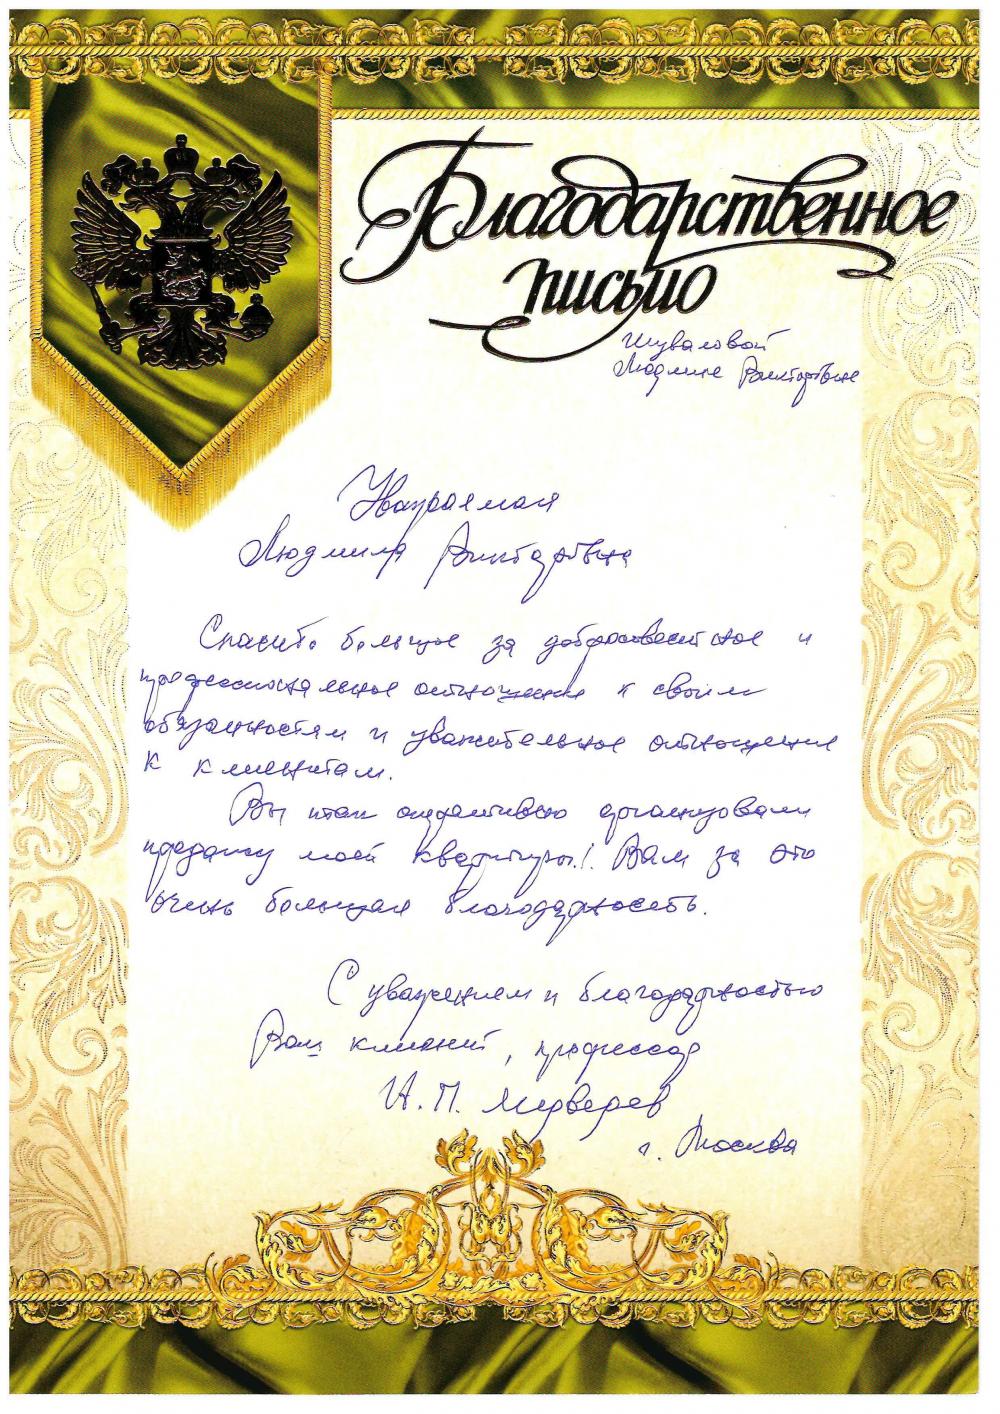 Благодарственное
письмо
Шуваловой
Людмиле Викторовне
Уважаемая
Людмила Викторовна
Спасибо большое за добросовестное и
профессиональное отношение к своим
обязанностям и уважительное отношение
к клиентам.
Вы так оперативно организовали
продажу моей квартиры!. Вам за это
очень большая благодарность.
С уважением и благодарностью
Ваш клиент, профессор
И. П. Медведев
г. Москва